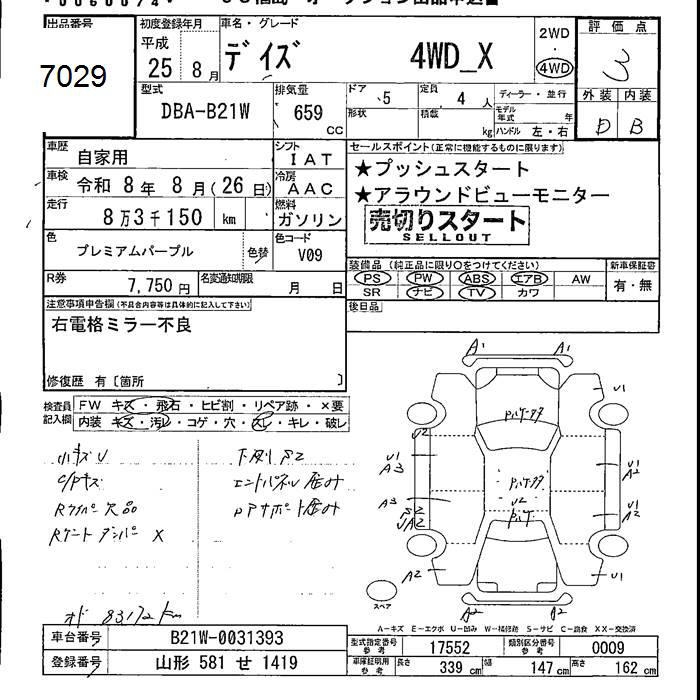 出品番号
7029
初度登録年月
平成
25年 8月
車名・グレード
デイズ 4WD_X
2WD
4WD
評価点
3
外装 内装
D B
型式
DBA-B21W
排気量
659
CC
ドア
5
定員
4 人
形状
積載
kg
ディーラー・並行
モデル年式 年
ハンドル 左・右
車歴
自家用
シフト
IAT
車検
令和 8年 8月(26日)
冷房
AAC
走行
8万3千150 km
燃料
ガソリン
色
プレミアムパープル
色替
色コード
V09
R券
7,750円
名変通知期限
月 日
セールスポイント(正常に機能するものに限ります)
★プッシュスタート
★アラウンドビューモニター
売切りスタート
SELLOUT
装備品 (純正品に限り○をつけてください)
PS PW ABS エアB AW
SR ナビ TV カワ
新車保証書
有・無
後日品
注意事項申告欄(不具合内容等は具体的に記入して下さい)
右電格ミラー不良
修復歴 有〔箇所 〕
検査員記入欄
FW キズ・飛石・ヒビ割・リペア跡・×要
内装 キズ・汚レ・コゲ・穴・スレ・キレ・破レ
小キズU
下廻りS2
エンドパネル歪み
Rワイパー欠品
Rゲートダンパー X
オド 83172km
A1 A1
U1
U2
U1
A3
U1
A2
A3
U1
A2
S2
A2
U1
A2 A2
スペア
A-キズ E-エクボ U-凹み W-補修跡 S-サビ C-腐食 XX-交換済
車台番号
B21W-0031393
登録番号
山形 581 せ 1419
型式指定番号
参考
17552
類別区分番号
参考
0009
車庫証明用
参考
長さ
339 cm
幅
147 cm
高さ
162 cm